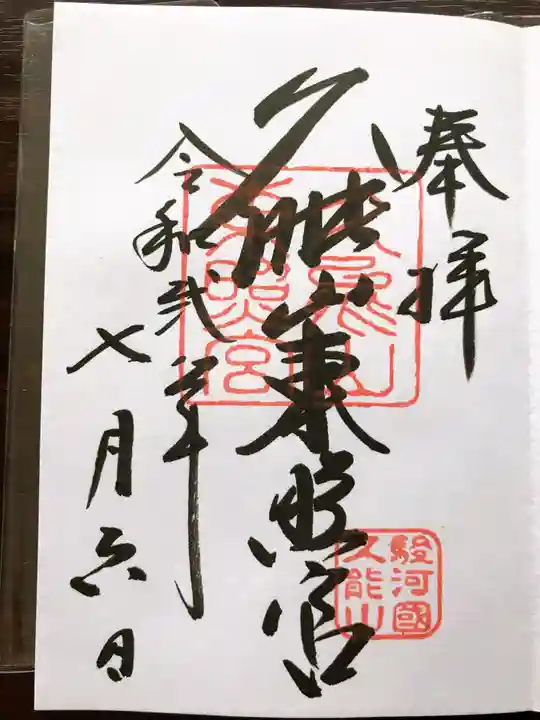 奉拝
久能山東照宮
久能山
東照宮
駿河國
久能山
令和弐年
七月六日